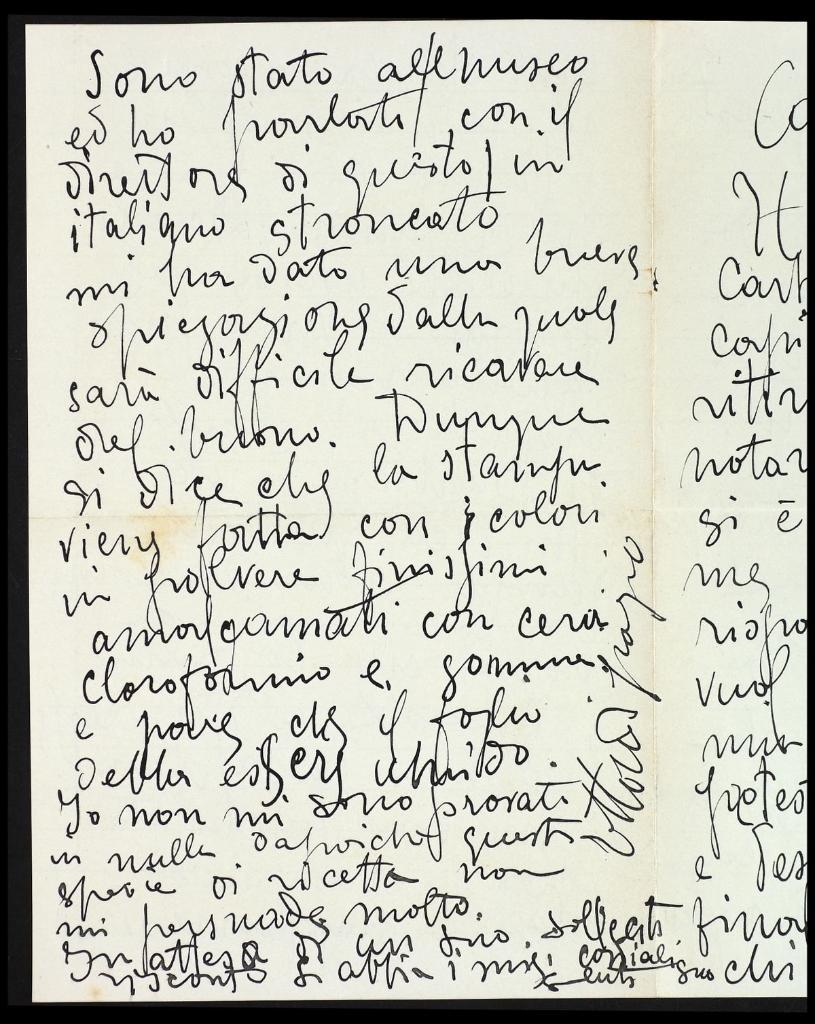 Sono stato all museo
ed ho parlato con il
direttore di questo in
italiano stroncato
mi ha dato una breve
spiegazione dalla quale
sarà difficile ricavare
del buono. Dunque
si dice che la stampa
viene fatta con i colori
in polvere finissimi
amalgamati con cera
cloroformio e gomma
e pare che il foglio
debba essere umido.
Io non mi sono provato
in nulla dapoiché questa
specie di ricetta non
mi persuade molto.
In attesa di un suo sollecito
riscontro si abbia i miei cordiali
Ca
H
Cart
capi
ritir
notar
si è
me
rispo
vuol
mia
e des
final
chi